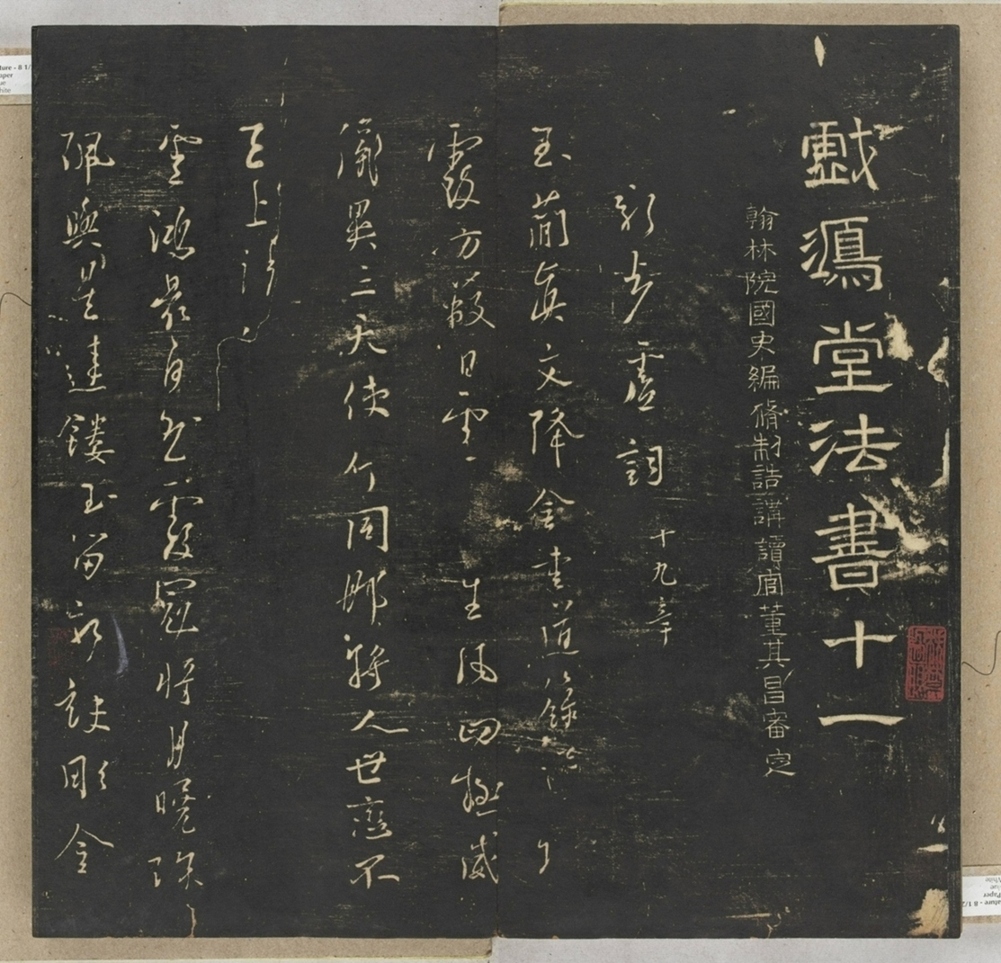 戲鴻堂法書十一
翰林院國史編脩制誥講讀官董其昌審定
新步虛詞 十九章
玉簡真文降金書道籙
霞方蔽日雲 生風四極威
儀異三天使命同那將人世戀不
去上清
雲鴻最自然霞冠將月曉珠
佩與星連鏤玉留新訣彫金